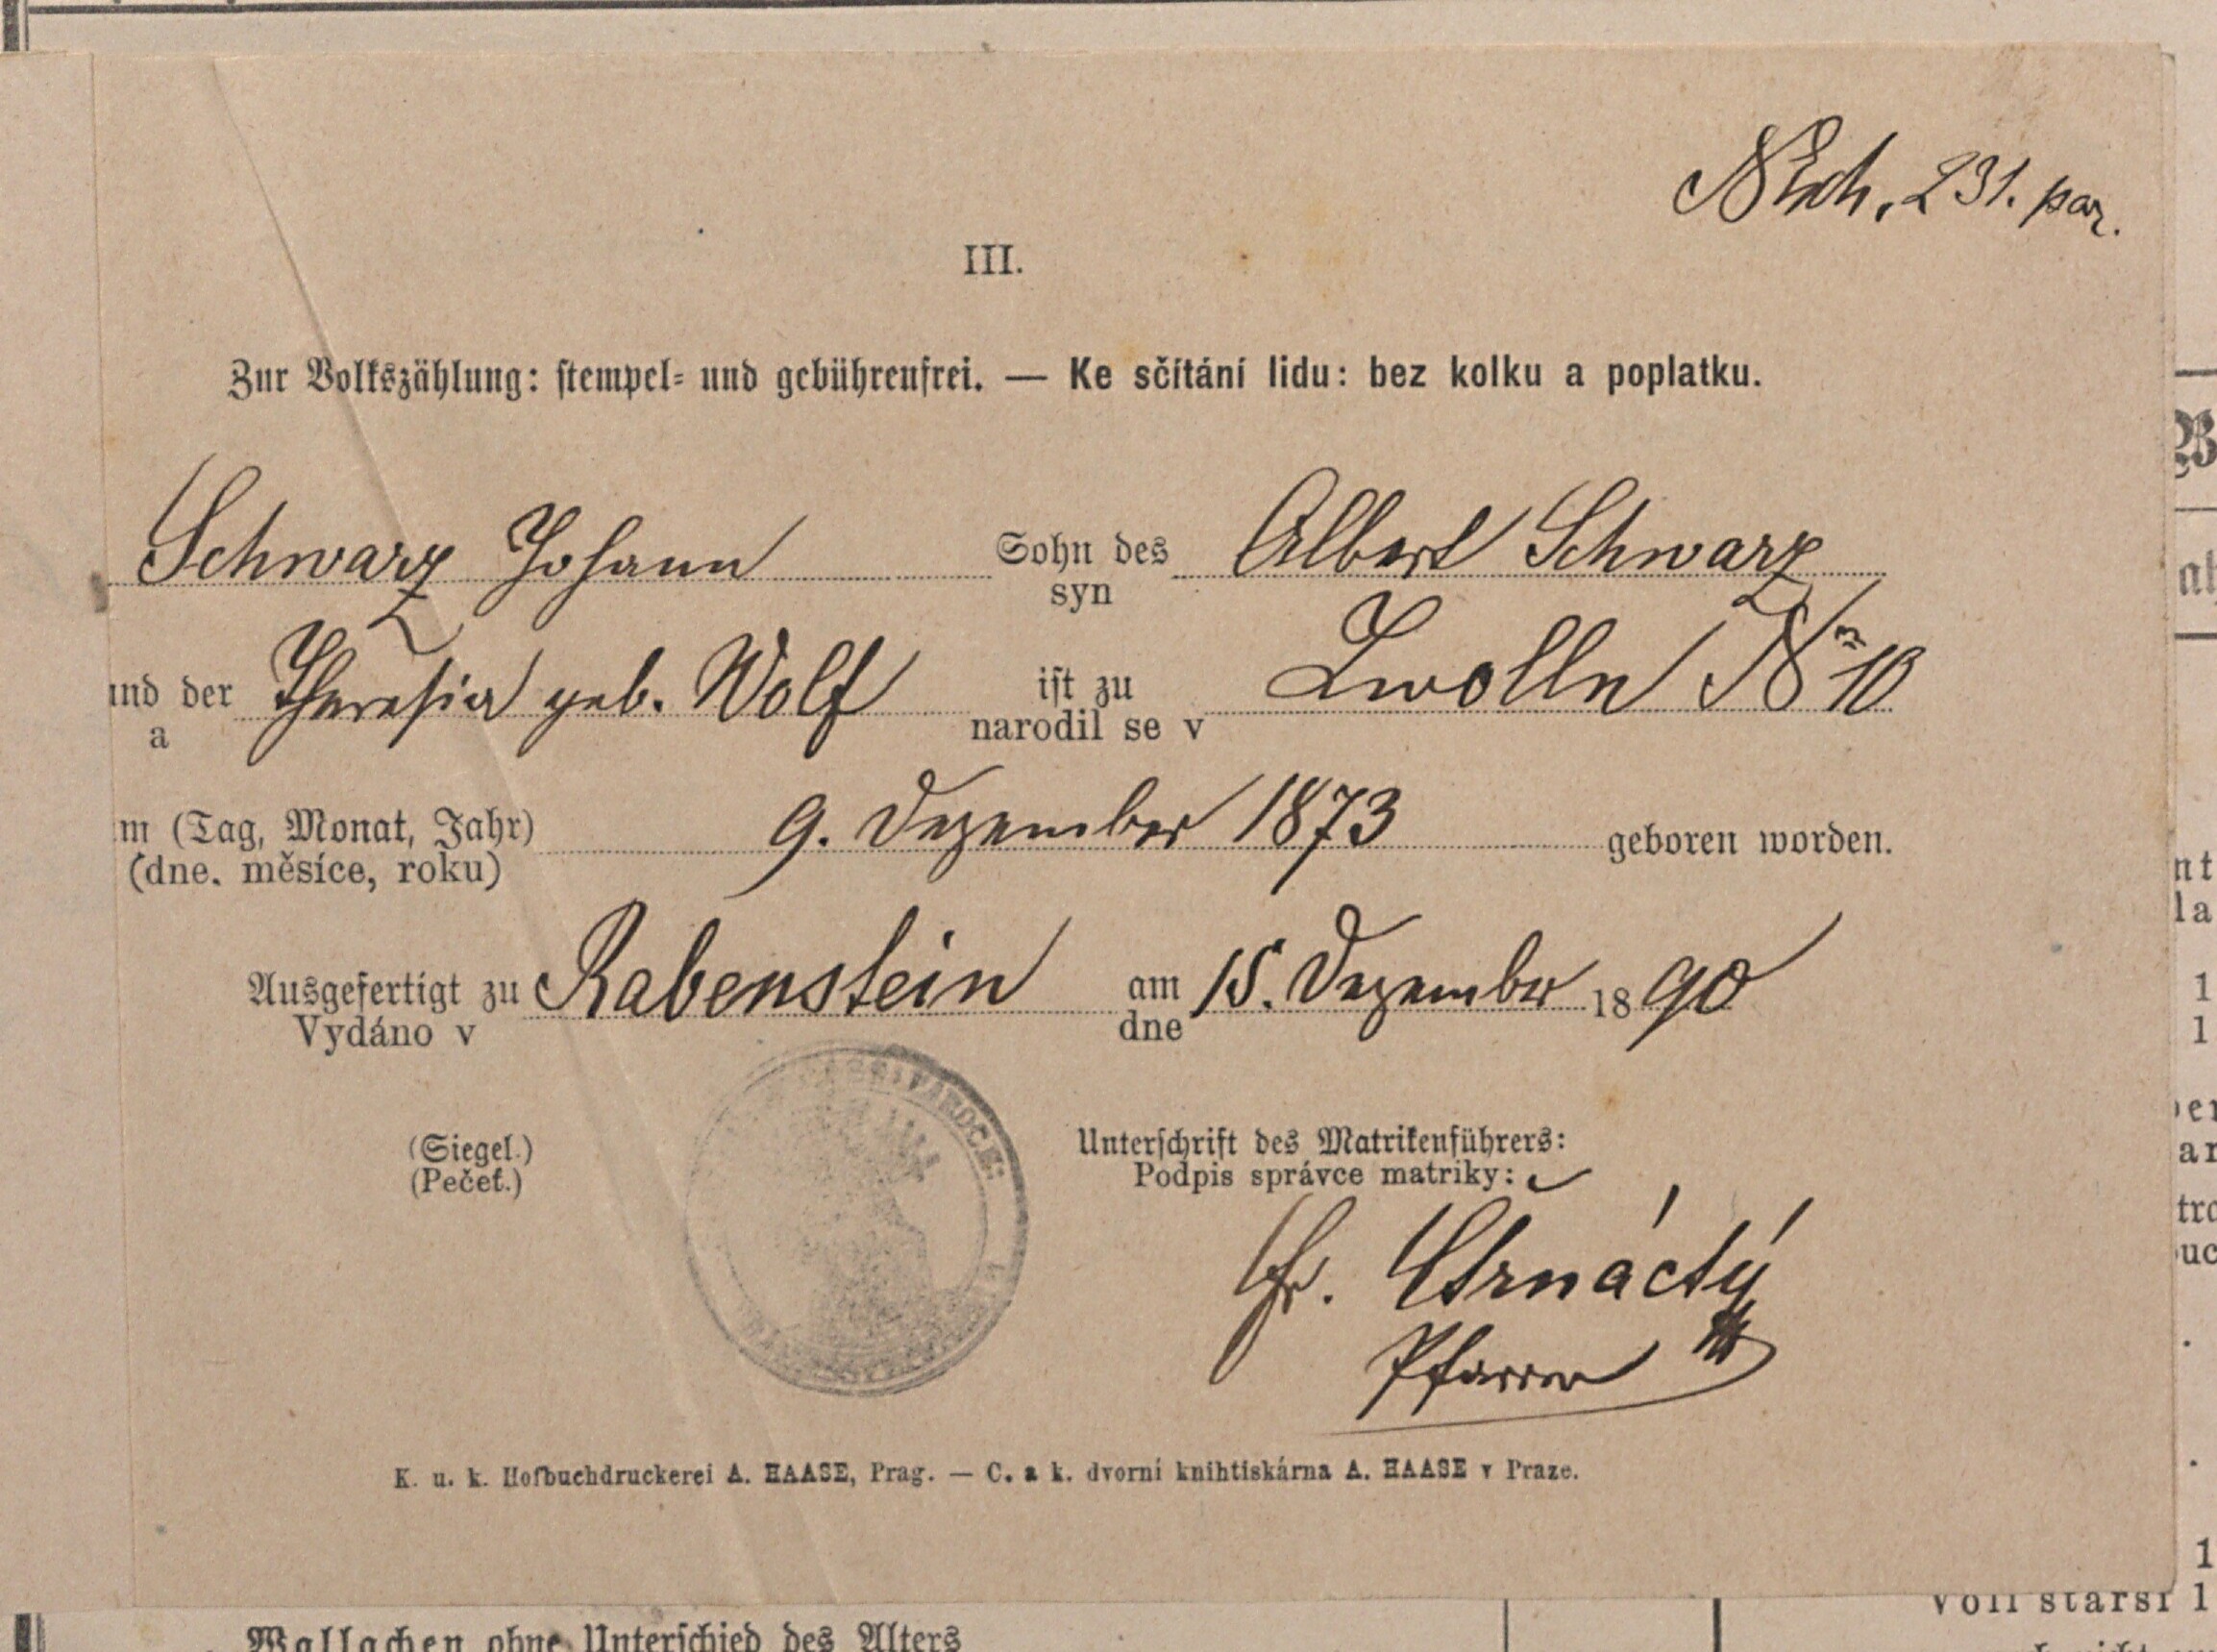 NEch. 231. par.
III.
Zur Volkszählung: stempel- und gebührenfrei. — Ke sčítání lidu: bez kolku a poplatku.
Schwarz Johann Sohn des Albert Schwarz
syn
und der Theresia geb. Wolf ist zu Zwolln No 10
a narodil se v
m (Tag, Monat, Jahr) 9. Dezember 1873 geboren worden.
(dne. měsíce, roku)
Ausgefertigt zu Rabenstein am 15. Dezember 1890
Vydáno v dne
(Siegel.) Unterschrift des Matrikenführers:
(Pečeť.) Podpis správce matriky:
Fr. Čtrnáctý
Pfarrer
K. u. k. Hofbuchdruckerei A. HAASE, Prag. — C. a k. dvorní knihtiskárna A. HAASE v Praze.
voll starší 1
Wallachen ohne Unterschied des Alters